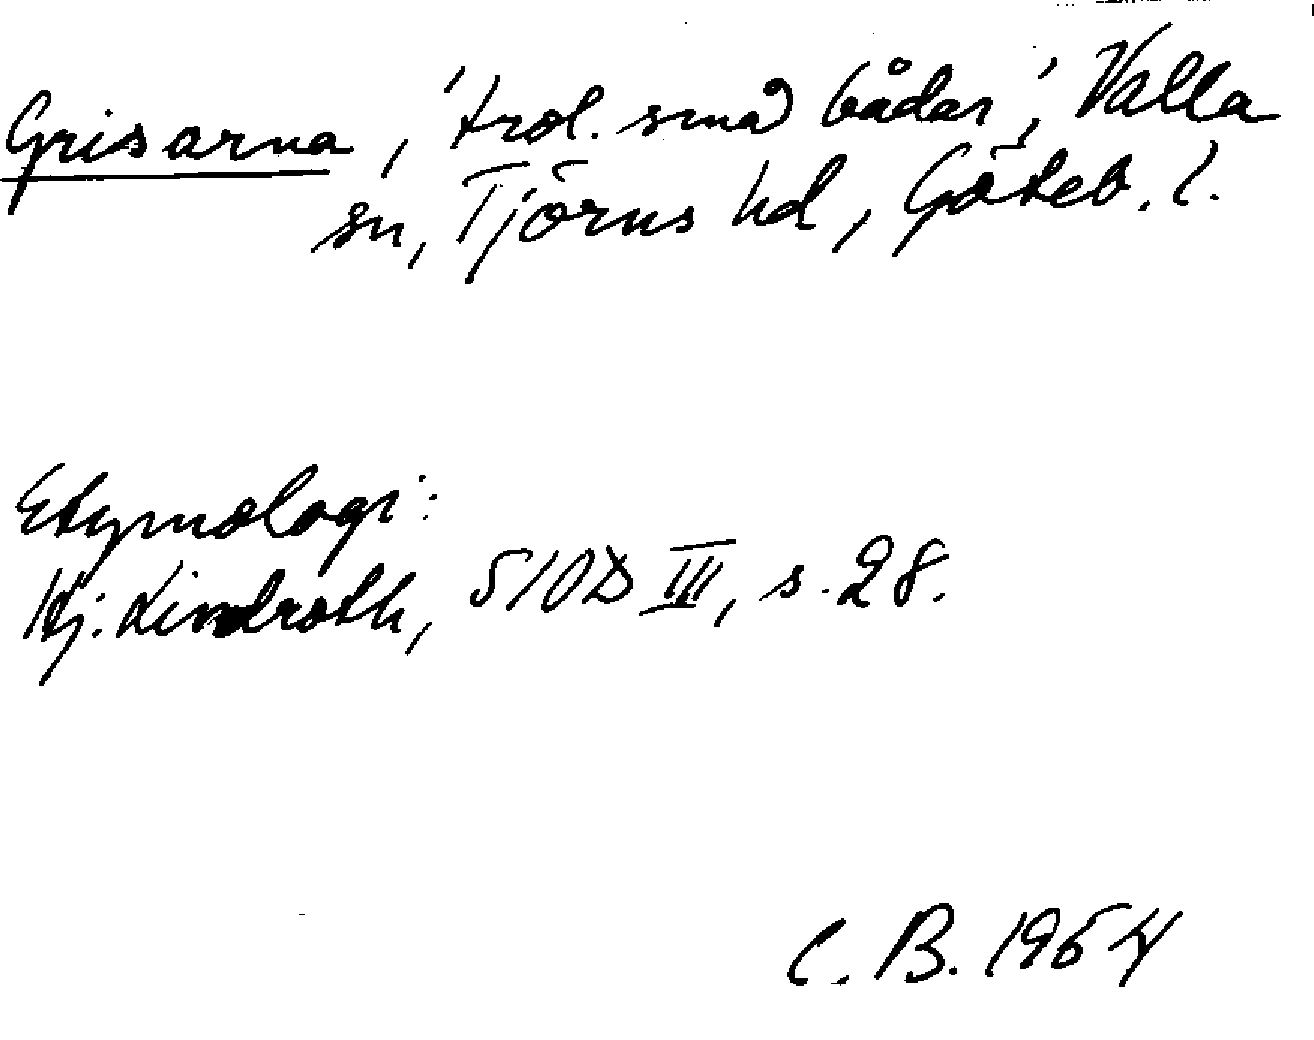 Grisarna, 'trol. små bådar', Valla
sn, Tjörns hd, Göteb. l.
Etymologi:
Hj. Lindroth, SIOD III, s. 28.
C. B. 1964